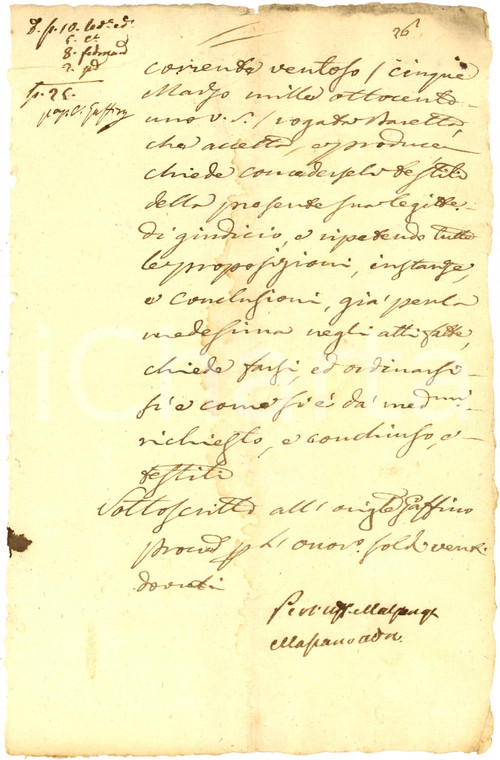 26
corrente ventoso / cinque
Marzo mille ottocento
uno v. S. / rogata Baretta,
che accetta, e produce
chiede concedersele testi.li
della presente sua legitt.e
di giudicio, e ripetendo tutte
le proposizioni, instanze,
e conclusioni, già per la
medesima negli atti fatte,
chiede farsi, ed ordinarsi
si e come si è da med.mi
richiesto, e conchiuso, e
testi.li
Sottoscritto all' orig.le Gaffino
proc.e p. l' onor.o soldi venti
dovuti
iCharta